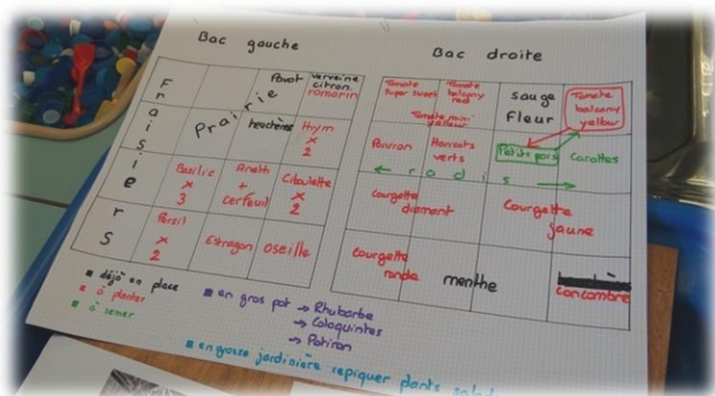 Bac gauche
Bac droite
Fraisiers
Prairie
Pavot
verveine
citron
romarin
heuchères
thym
x
2
Basilic
x
3
Aneth
+
cerfeuil
Ciboulette
x
2
Persil
x
2
Estragon
oseille
Tomate
super sweet
Tomate
balcony
red
Tomate mini
yalleur
sauge
Fleur
Tomate
balcony
yellow
Poivron
Haricots
verts
Petits pois
Carottes
← radis →
Courgette
diamant
Courgette
jaune
Courgette
ronde
menthe
Concombre
déjà en place
à planter
à semer
en gros pot → Rhubarbe
→ Coloquintes
→ Potiron
en grosse jardinière repiquer plants